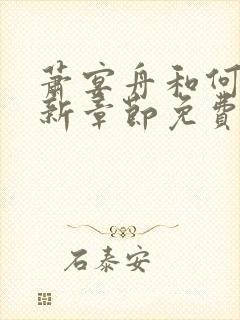 萧宴舟和何
新章节免费
石泰安